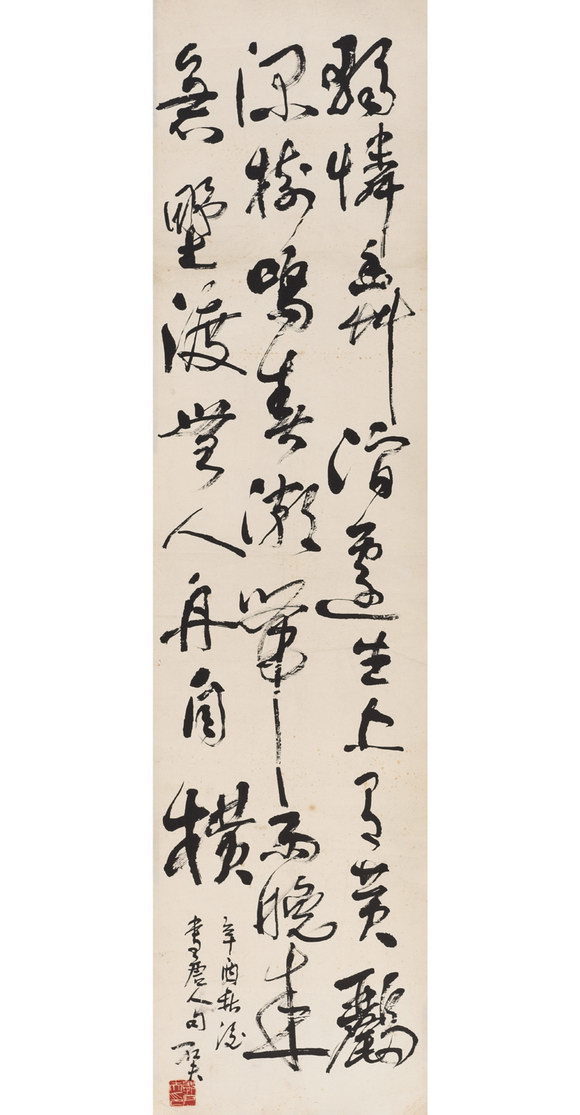 獨憐幽艸澗邊生上有黃鸝
深樹鳴春潮帶雨晚來
急野渡無人舟自橫
辛酉秋後
書唐人句